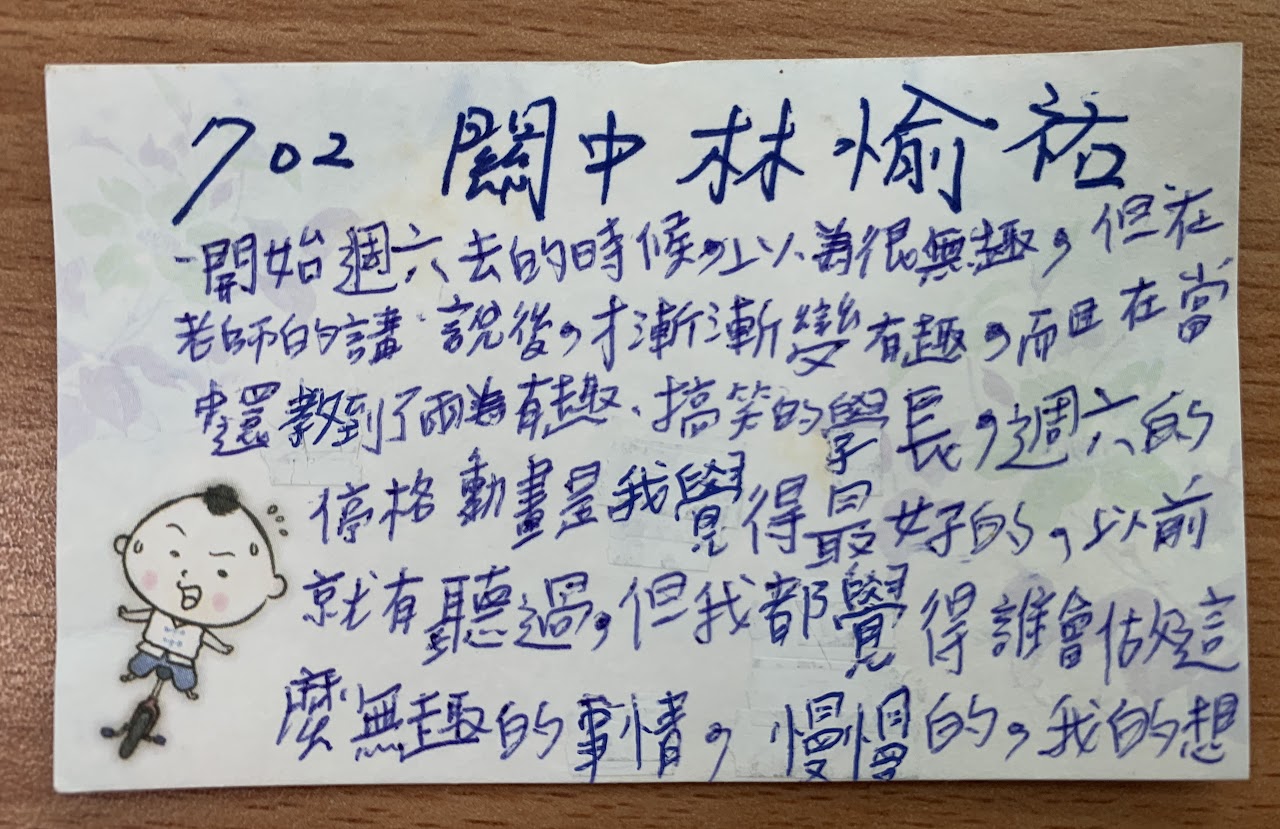 702 關中林愉祐
一開始週六去的時候，以為很無趣，但在
老師的講說後，才漸漸變有趣，而且在當
中還教到了兩為有趣、搞笑的學長，週六的
停格動畫是我覺得最好的，以前
就有聽過，但我都覺得誰會做這
麼無趣的事情，慢慢的，我的想